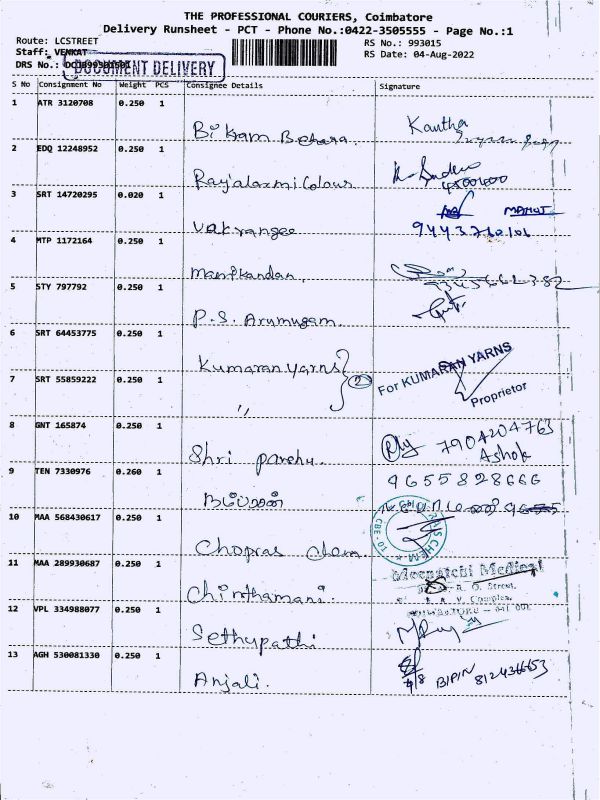 THE PROFESSIONAL COURIERS, Coimbatore
Delivery Runsheet - PCT - Phone No.:0422-3505555 - Page No.:1
Route: LCSTREET
RS No.: 993015
Staff: VENKAT
RS Date: 04-Aug-2022
DRS No.:
DOCUMENT DELIVERY
S No Consignment No Weight PCS Consignee Details Signature
1 ATR 3120708 0.250 1
Bikram Behara. Kautha
2 EDQ 12248952 0.250 1
Rajalaxmi Colour
3 SRT 14720295 0.020 1
MANOJ
Vakrangee 9443760106
4 MTP 1172164 0.250 1
Manikandan.
5 STY 797792 0.250 1
P.S. Arumugam.
6 SRT 64453775 0.250 1
Kumaran yarns
For KUMARAN YARNS
7 SRT 55859222 0.250 1
2
Proprietor
〃
8 GNT 165874 0.250 1
7904204763
Shri Ashok
9 TEN 7330976 0.260 1
9655828666
10 MAA 568430617 0.250 1
CHEM
CBE-10
Chopras Chem
11 MAA 289930687 0.250 1
Meenatchi Medical
Chinthamani.
12 VPL 334988077 0.250 1
Sethupathi
13 AGH 530081330 0.250 1
Anjali. 4/8 BIPIN 8124366653